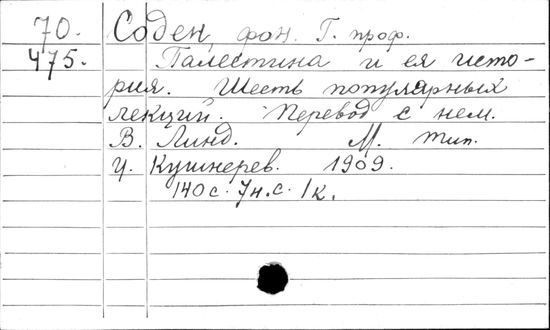 70. Соден, фон. Г. проф.
475. Палестина и ея исто-
рия. Шесть популярных
лекций. Перевод с нем.
В. Линд. М. тип.
И. Кушнерев. 1909.
140 с. 7 н.с. 1 к.